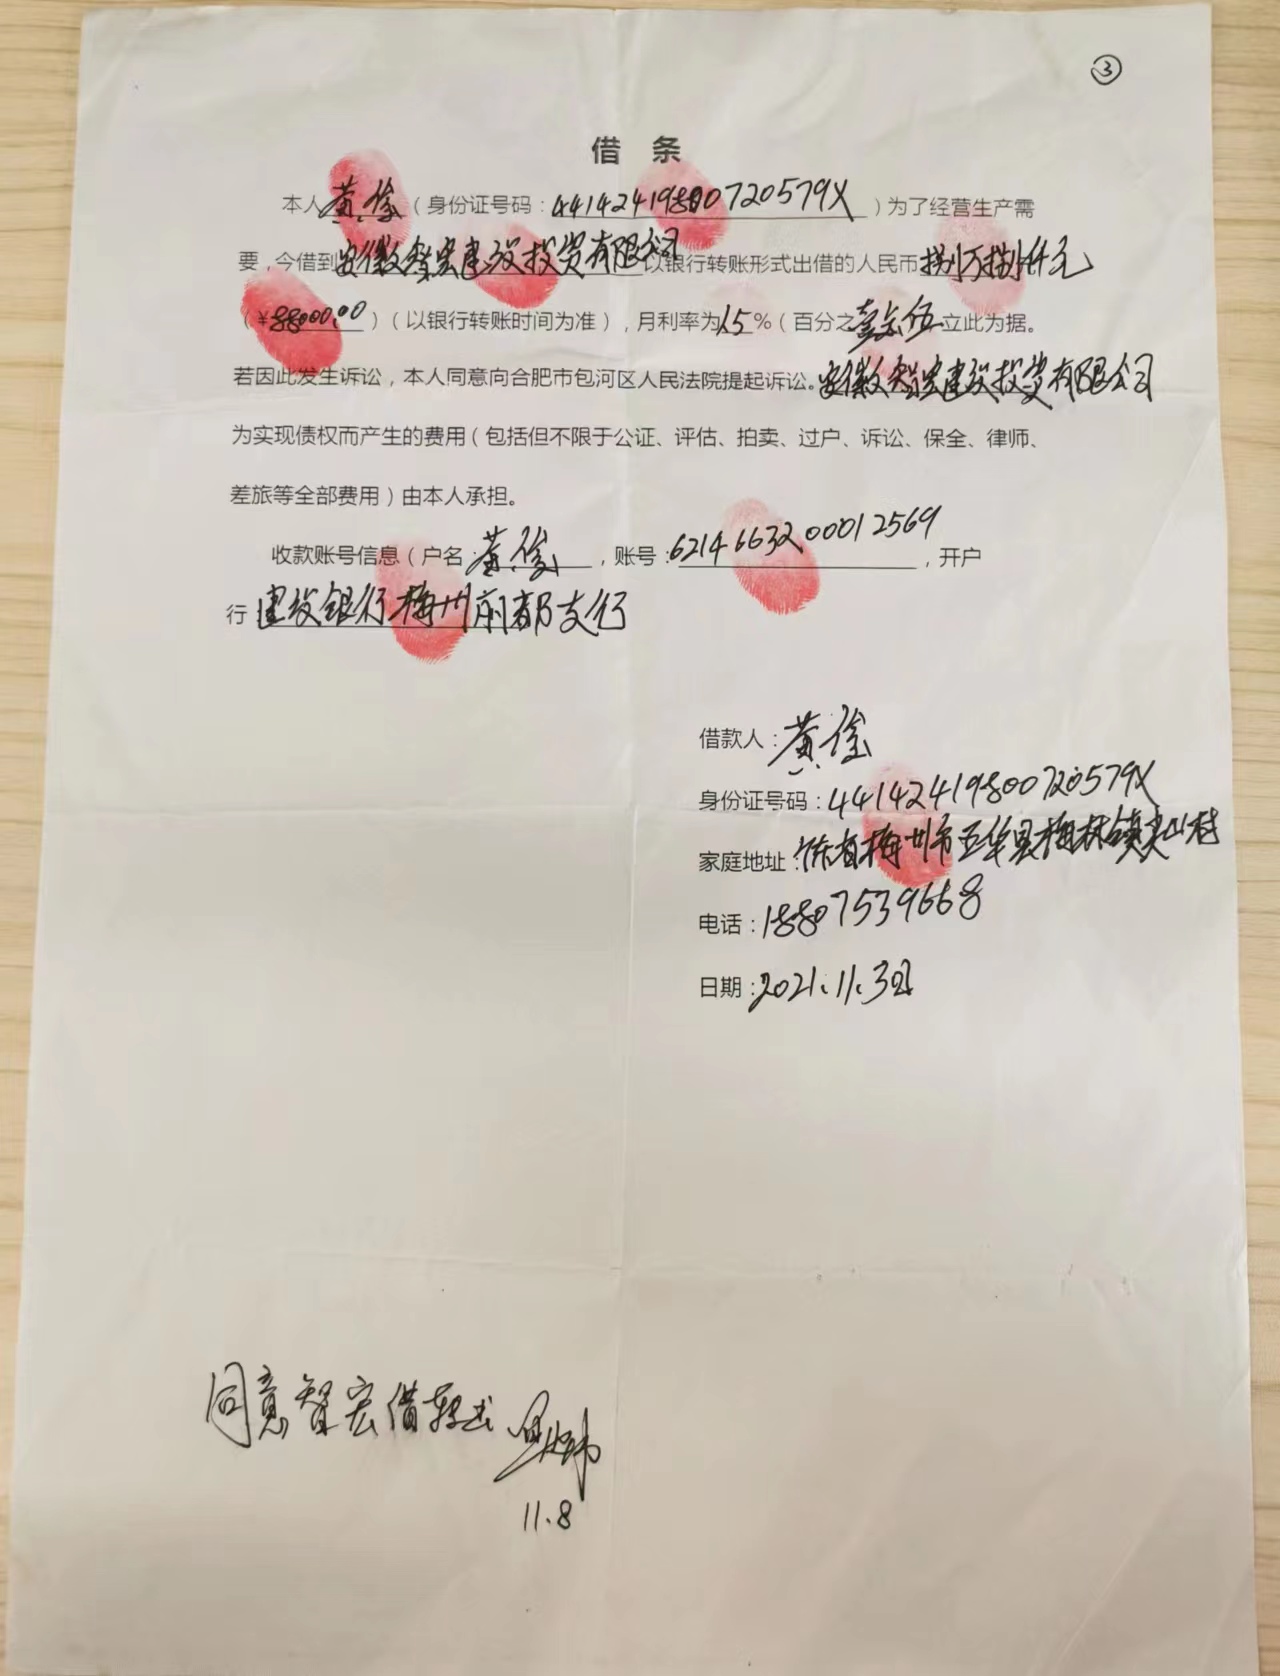 ③
借 条
本人黄俊(身份证号码:44142419800720579X)为了经营生产需
要,今借到安徽智宏建设投资有限公司以银行转账形式出借的人民币捌万捌仟元
(¥88000.00)(以银行转账时间为准),月利率为1.5%(百分之壹点伍 立此为据。
若因此发生诉讼,本人同意向合肥市包河区人民法院提起诉讼。安徽智宏建设投资有限公司
为实现债权而产生的费用(包括但不限于公证、评估、拍卖、过户、诉讼、保全、律师、
差旅等全部费用)由本人承担。
收款账号信息(户名:黄俊,账号:6214663200012569,开户
行 建设银行梅州丽都支行
借款人:黄俊
身份证号码:44142419800720579X
家庭地址:广东省梅州市五华县梅林镇尖山村
电话:18807539668
日期:2021.11.3日
同意智宏借转出
11.8